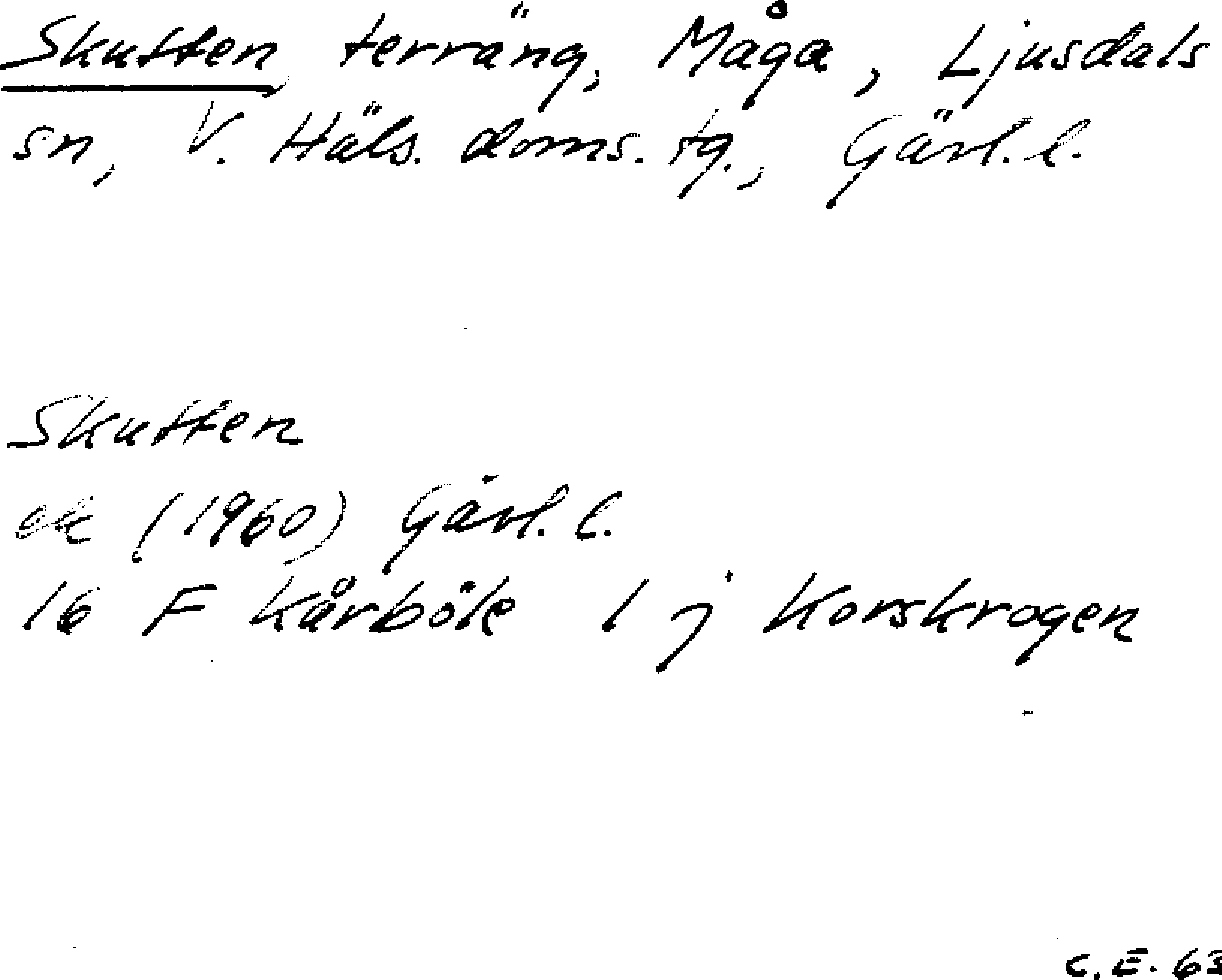 Skutten terräng, Måga, Ljusdals
sn, V. Häls. doms. tg., Gävl. l.
Skutten
ek (1960) Gävl. l.
16 F Kårböle 1 j Korskrogen
C. E. 63